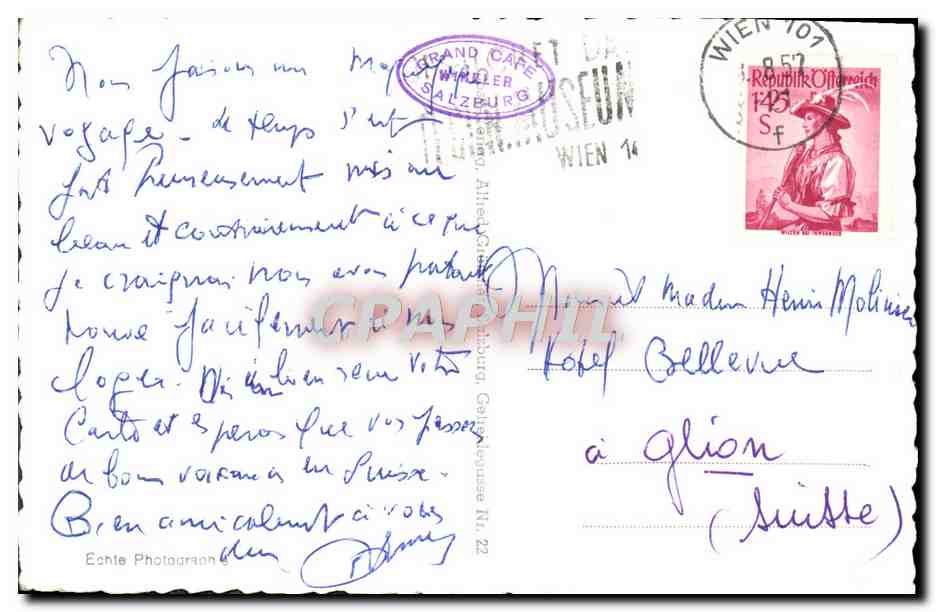 Nous faisons un magnifique
voyage - le temps s'est
fait heureusement mis au
beau et contrairement à ce que
je craignais nous avons partout
trouvé facilement à nous
loger. Ai bien reçu votre
carte et espérons que vous passez
de bonnes vacances en Suisse.
Bien amicalement à vous
deux
GRAND CAFE
WINKLER
SALZBURG
MUSEUM
WIEN 14
WIEN 101
8.52
f
Republik Österreich
1'45
S
Madame Henri
Hotel Bellevue
à Glion
(Suisse)
Echte Photographie
Alfred Salzburg, Getreidegasse Nr. 22
CPAPHIL